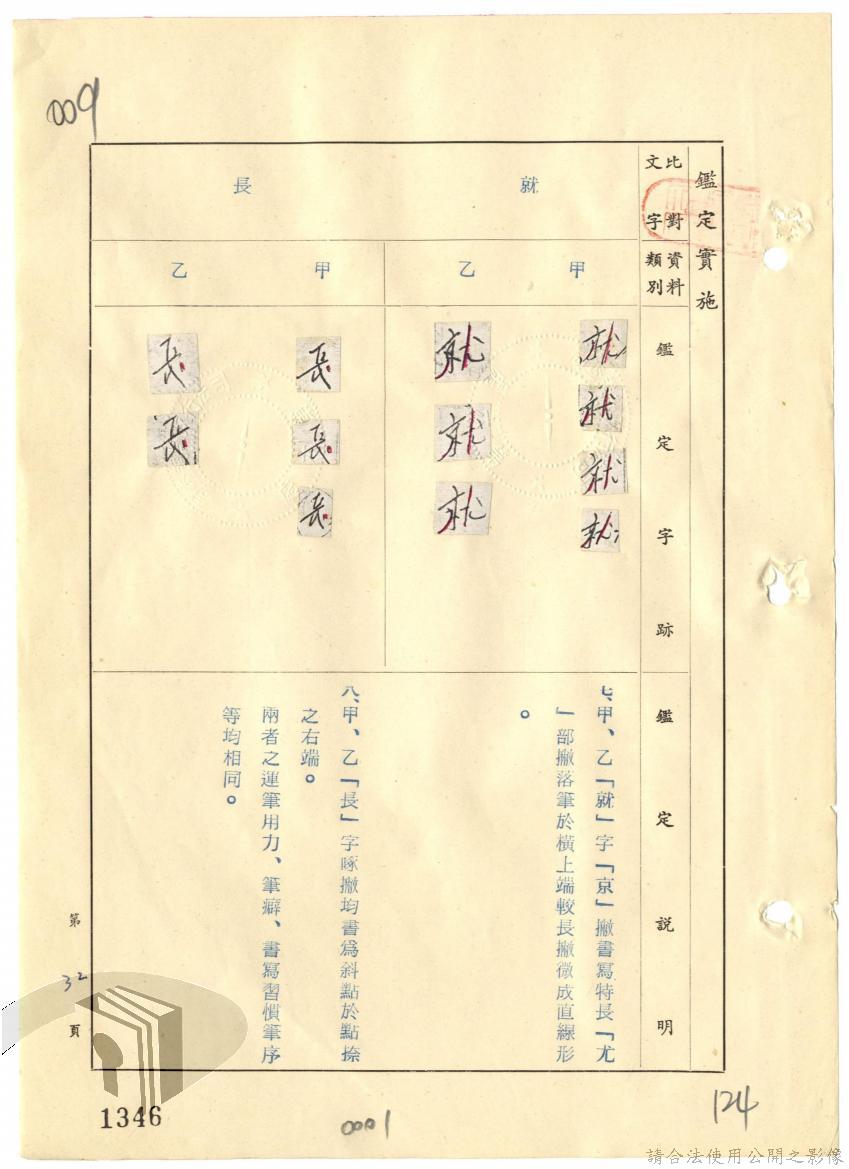 009
鑑定實施
比對
文字
資料
類別
鑑定字跡
鑑定説明
就
甲
乙
就
就
就
就
就
就
就
七、甲、乙「就」字「京」撇書寫特長「尤
」部撇落筆於橫上端較長撇微成直線形
。
長
甲
乙
長
長
長
長
長
八、甲、乙「長」字啄撇均書爲斜點於點捺
之右端。
兩者之運筆用力、筆癖、書寫習慣筆序
等均相同。
第32頁
1346
0001
124
請合法使用公開之影像